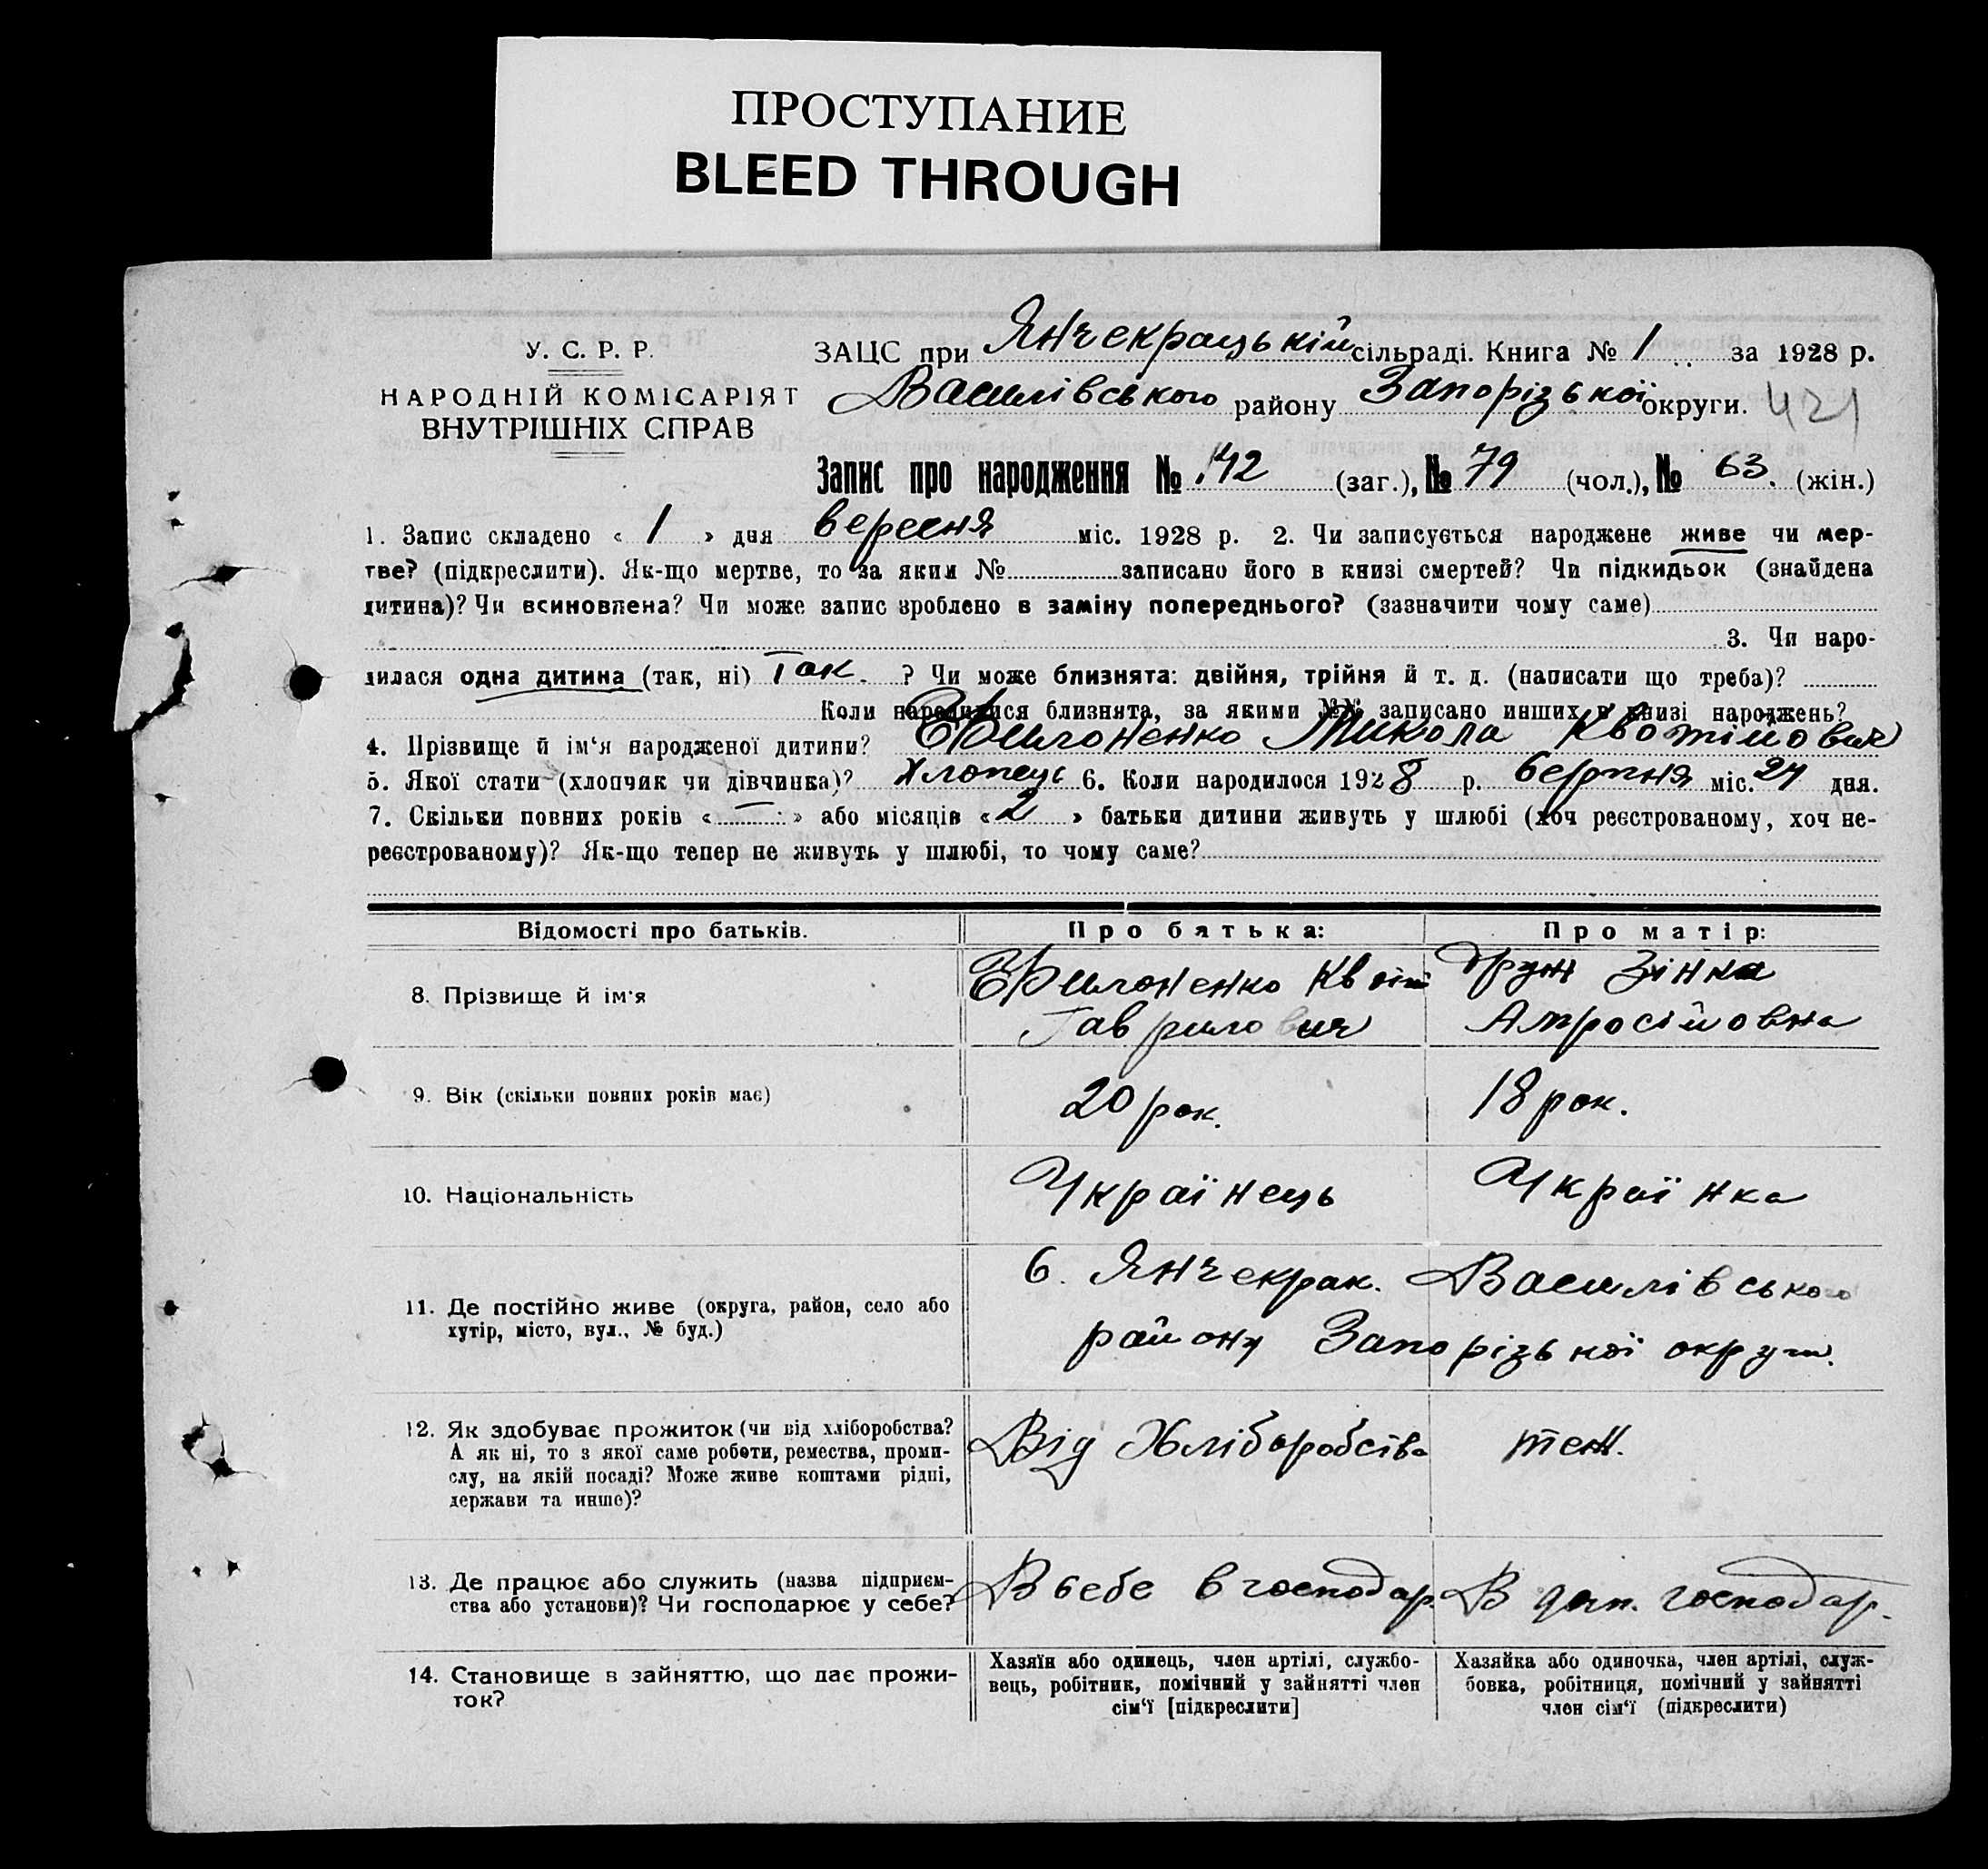 ПРОСТУПАНИЕ
BLEED THROUGH
У. С. Р. Р.
НАРОДНІЙ КОМІСАРІЯТ
ВНУТРІШНІХ СПРАВ
ЗАЦС при Янчекрацькій сільраді. Книга № 1 за 1928 р.
Василівського району Запорізької округи. 421
Запис про народження № 142 (заг.), № 79 (чол.), № 63. (жін.)
1. Запис складено « 1 » дня вересня міс. 1928 р. 2. Чи записується народжене живе чи мер-
тве? (підкреслити). Як-що мертве, то за яким № записано його в книзі смертей? Чи підкидьок (знайдена
дитина)? Чи всиновлена? Чи може запис зроблено в заміну попереднього? (зазначити чому саме)
3. Чи наро-
дилася одна дитина (так, ні) Так. ? Чи може близнята: двійня, трійня й т. д. (написати що треба)?
Коли народилися близнята, за якими №№ записано инших в книзі народжень?
4. Прізвище й ім‘я народженої дитини? Филоненко Микола
5. Якої стати (хлопчик чи дівчинка)? Хлопець 6. Коли народилося 1928 р. Серпня міс. 27 дня.
7. Скільки повних років « — » або місяців « 2 » батьки дитини живуть у шлюбі (хоч реєстрованому, хоч не-
реєстрованому)? Як-що тепер не живуть у шлюбі, то чому саме?
Відомості про батьків. Про батька: Про матір:
8. Прізвище й ім‘я
Филоненко Зінка
Гаврилович Амросійовна
9. Вік (скільки повних років має) 20 рок. 18 рок.
10. Національність Українець Українка
11. Де постійно живе (округа, район, село або
хутір, місто, вул., № буд.)
С. Янчекрак. Василівського
району Запорізької округи.
12. Як здобуває прожиток (чи від хліборобства?
А як ні, то з якої саме роботи, ремества, проми-
слу, на якій посаді? Може живе коштами рідні,
держави та инше)?
Від Хліборобства теж.
13. Де працює або служить (назва підприєм-
ства або установи)? Чи господарює у себе?
В себе в господар. В господар.
14. Становище в зайняттю, що дає прожи-
ток?
Хазяїн або одинець, член артілі, службо-
вець, робітник, помічний у зайнятті член
сім‘ї [підкреслити]
Хазяйка або одиночка, член артілі, служ-
бовка, робітниця, помічний у зайнятті
член сім‘ї (підкреслити)